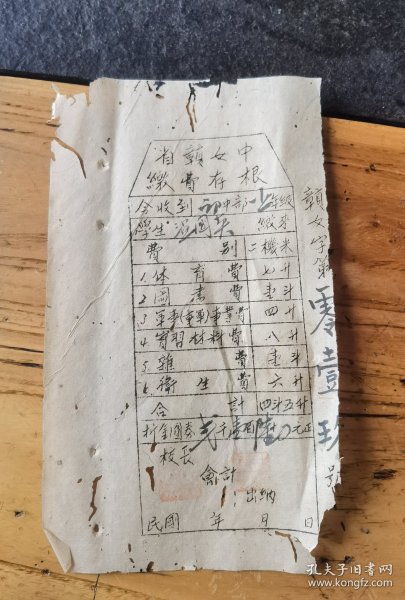 省贛女中
繳費存根
今收到初中部一上年級
學生 國 繳來
費別 二機米
1.体育費 七升
2.圖書費 壹斗
3.軍事(童軍)事業費 四升
4.實習材料費 八升
5.雜費 壹斗
6.衛生費 六升
合計 四斗五升
折金圓券 千壹百 元正
校長
會計
出納
民國 年 月 日
贛女字第零壹 號
孔夫子旧书网
www.kongfz.com